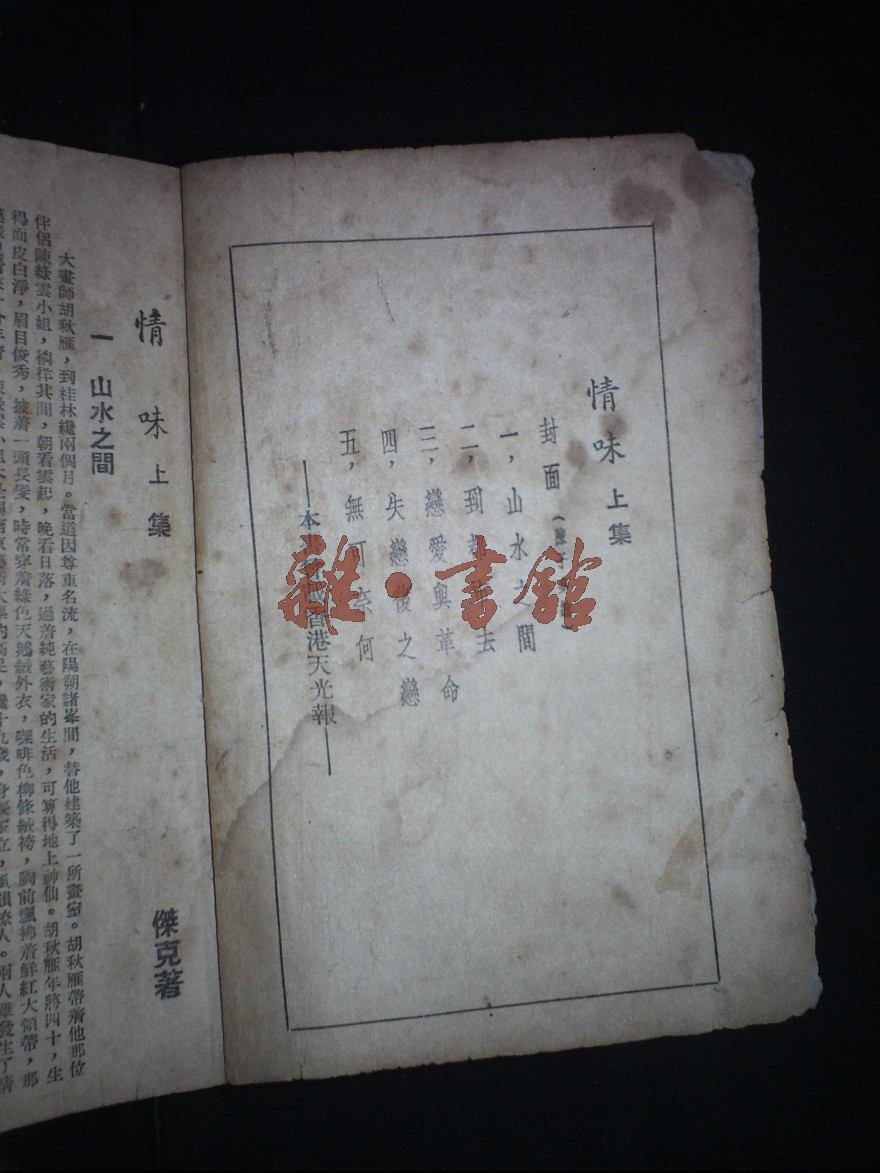 情味上集
封面（陳子
一，山水之間
二，到
去
三，戀愛與革命
四，失戀後之戀
五，無可奈何
——本書
香港天光報——
雜·書館
情味上集
傑克著
一 山水之間
大畫師胡秋雁，到桂林纔兩個月。當道因尊重名流，在陽朔諸峯間，替他建築了一所畫室。胡秋雁帶着他那位
伴侶陳綠雲小姐，徜徉其間，朝看雲起，晚看日落，過着純藝術家的生活，可算得地上神仙。胡秋雁年將四十，生
得面皮白淨，眉目俊秀，披着一頭長髮，時常穿着綠色天鵝絨外衣，咖啡色柳條絨袴，胸前飄拂着鮮紅大領帶，那